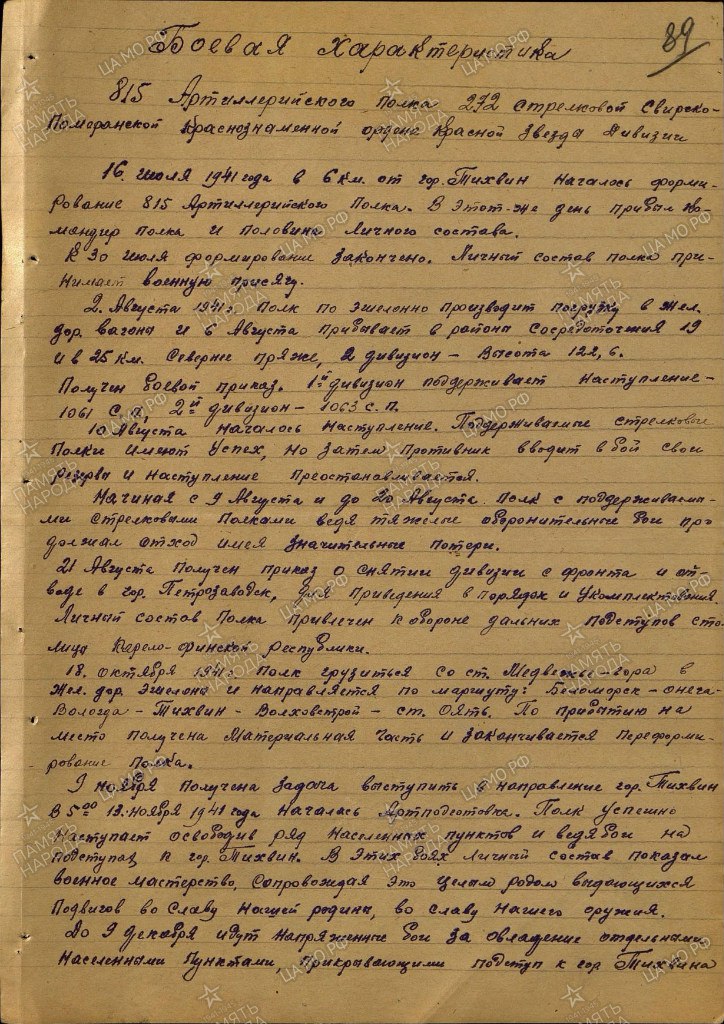 89
Боевая характеристика
815 Артиллерийского полка 272 стрелковой Свирско-
Поморанской Краснознаменной ордена Красной Звезда Дивизии
16. июля 1941 года в 6 км. от гор. Тихвин началось форми-
рование 815 Артиллерийского Полка. В этот-же день прибыл ко-
мандир полка и половина личного состава.
К 30 июля формирование закончено. Личный состав полка при-
нимает военную присягу.
2. Августа 1941г. Полк по эшелонно производит погрузку в жел.
дор. вагона и 6 Августа прибывает в района сосредоточения 19
и в 25 км. Севернее пряже, 2 дивизион - высота 122,6.
Получен боевой приказ. 1й дивизион поддерживает наступление-
1061 с.п., 2й дивизион - 1063 с.п.
10 Августа началось наступление. Поддерживаемые стрелковые
Полки имеют успех, но затем противник вводит в бой свои
резервы и наступление преостанавливается.
Начиная с 9 Августа и до 20 Августа Полк с поддерживаемы-
ми стрелковыми полками ведя тяжелые оборонительные бои про-
должал отход имея значительные потери.
21 Августа получен приказ о снятии дивизии с фронта и от-
воде в гор. Петрозаводск, для приведения в порядок и укомплектования.
Личный состав Полка привлечен к обороне дальних подступов сто-
лицы Карело-Финской республики.
18. октября 1941г. Полк грузиться со ст. Медвежье-гора в
жел. дор. эшелона и направляется по маршуту: Беломорск - онега-
Вологда - Тихвин - Волховстрой - ст. Оять. По прибытию на
место получена материальная часть и заканчивается переформи-
рование полка.
9 ноября получена задача выступить в направление гор. Тихвин
В 5 00 12. ноября 1941 года началась Артподготовка. Полк успешно
наступает освободив ряд населенных пунктов и ведя бои на
подступах к гор. Тихвин. В этих боях личный состав показал
военное мастерство, сопровождая это целым родом выдающихся
подвигов во славу нашей родины, во славу нашего оружия.
До 9 декабря идут напряженные бои за овладение отдельными
населенными пунктами, прикрывающими подступ к гор Тихвина
ЦАМО.РФ
ПАМЯТЬ НАРОДА